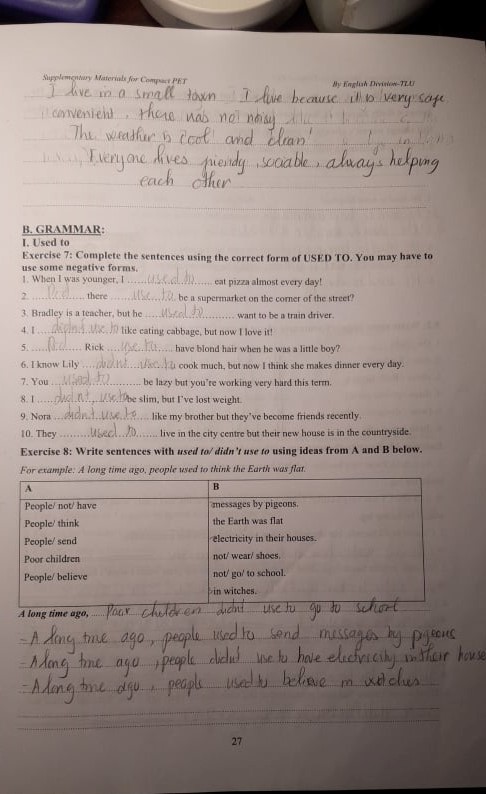 Supplementary Materials for Compact PET By English Division-TLU
I live in a small town I live because it is very safe
convenient, there was not noisy
The weather is cool and clean
Everyone lives friendy, sociable, always helping
each other
B. GRAMMAR:
I. Used to
Exercise 7: Complete the sentences using the correct form of USED TO. You may have to
use some negative forms.
1. When I was younger, I ......used to...... eat pizza almost every day!
2. ......Did...... there ......use to...... be a supermarket on the corner of the street?
3. Bradley is a teacher, but he ......used to...... want to be a train driver.
4. I ......didn't use to like eating cabbage, but now I love it!
5. ......Did...... Rick ......use to...... have blond hair when he was a little boy?
6. I know Lily ......didn't use to cook much, but now I think she makes dinner every day.
7. You ......used to...... be lazy but you're working very hard this term.
8. I ......didn't use to be slim, but I've lost weight.
9. Nora ......didn't use to... like my brother but they've become friends recently.
10. They ......used to...... live in the city centre but their new house is in the countryside.
Exercise 8: Write sentences with used to/ didn't use to using ideas from A and B below.
For example: A long time ago, people used to think the Earth was flat.
A B
People/ not/ have messages by pigeons.
People/ think the Earth was flat
People/ send electricity in their houses.
Poor children not/ wear/ shoes.
People/ believe not/ go/ to school.
in witches.
A long time ago, ......Poor children didnt use to go to school
- A long time ago, people used to send messages by pigeons
- A long time ago, people didnt use to have electricity in their house
- A long time ago, people used to believe in witches
27